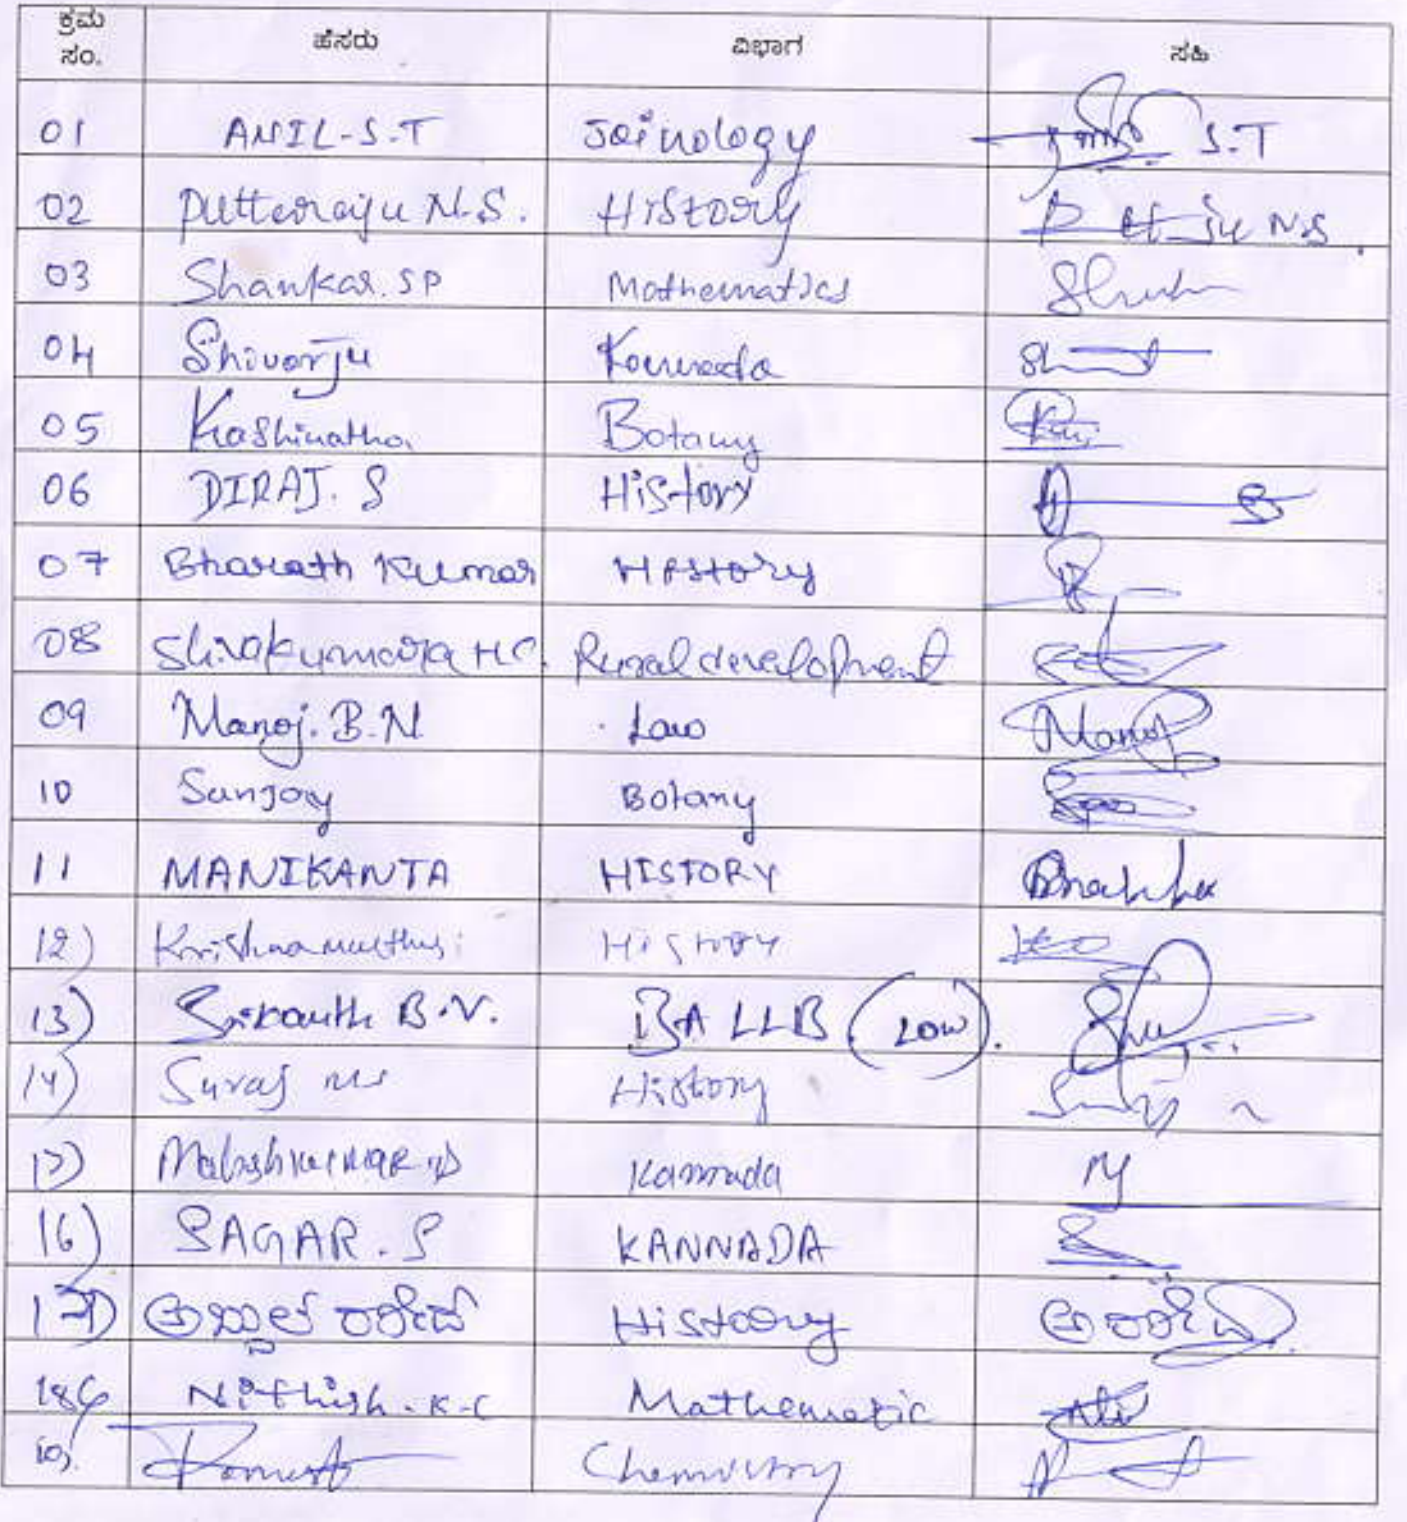 ಕ್ರಮ ಸಂ. ಹೆಸರು ವಿಭಾಗ ಸಹಿ
01 ANIL-S.T Jainology S.T
02 Puttaraju N.S. History N.S.
03 Shankar. SP Mathematics
04 Shivarju Kannada
05 Kashinatha Botany
06 DIRAJ. S History
07 Bharath Kumar History
08 Shivakumara H.C. Rural development
09 Manoj. B.N. Law Manoj
10 Sanjay Botany
11 MANIKANTA HISTORY
12) Krishnamurthy History
13) B.V. BA LLB (Low).
14) Suraj History
15) Kannada M
16) SAGAR. S KANNADA
17) ಅಬ್ದುಲ್ ರಶೀದ್ History ಅ ರಶೀದ್
18 Nithish. K.C Mathematic
19. Chemistry